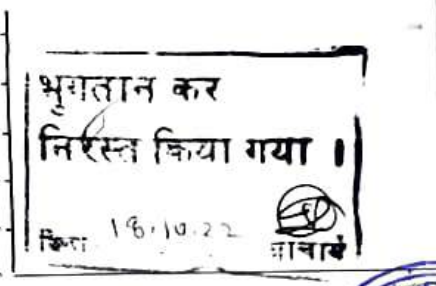 भुगतान कर
निरस्त किया गया ।
18.10.22
प्राचार्य